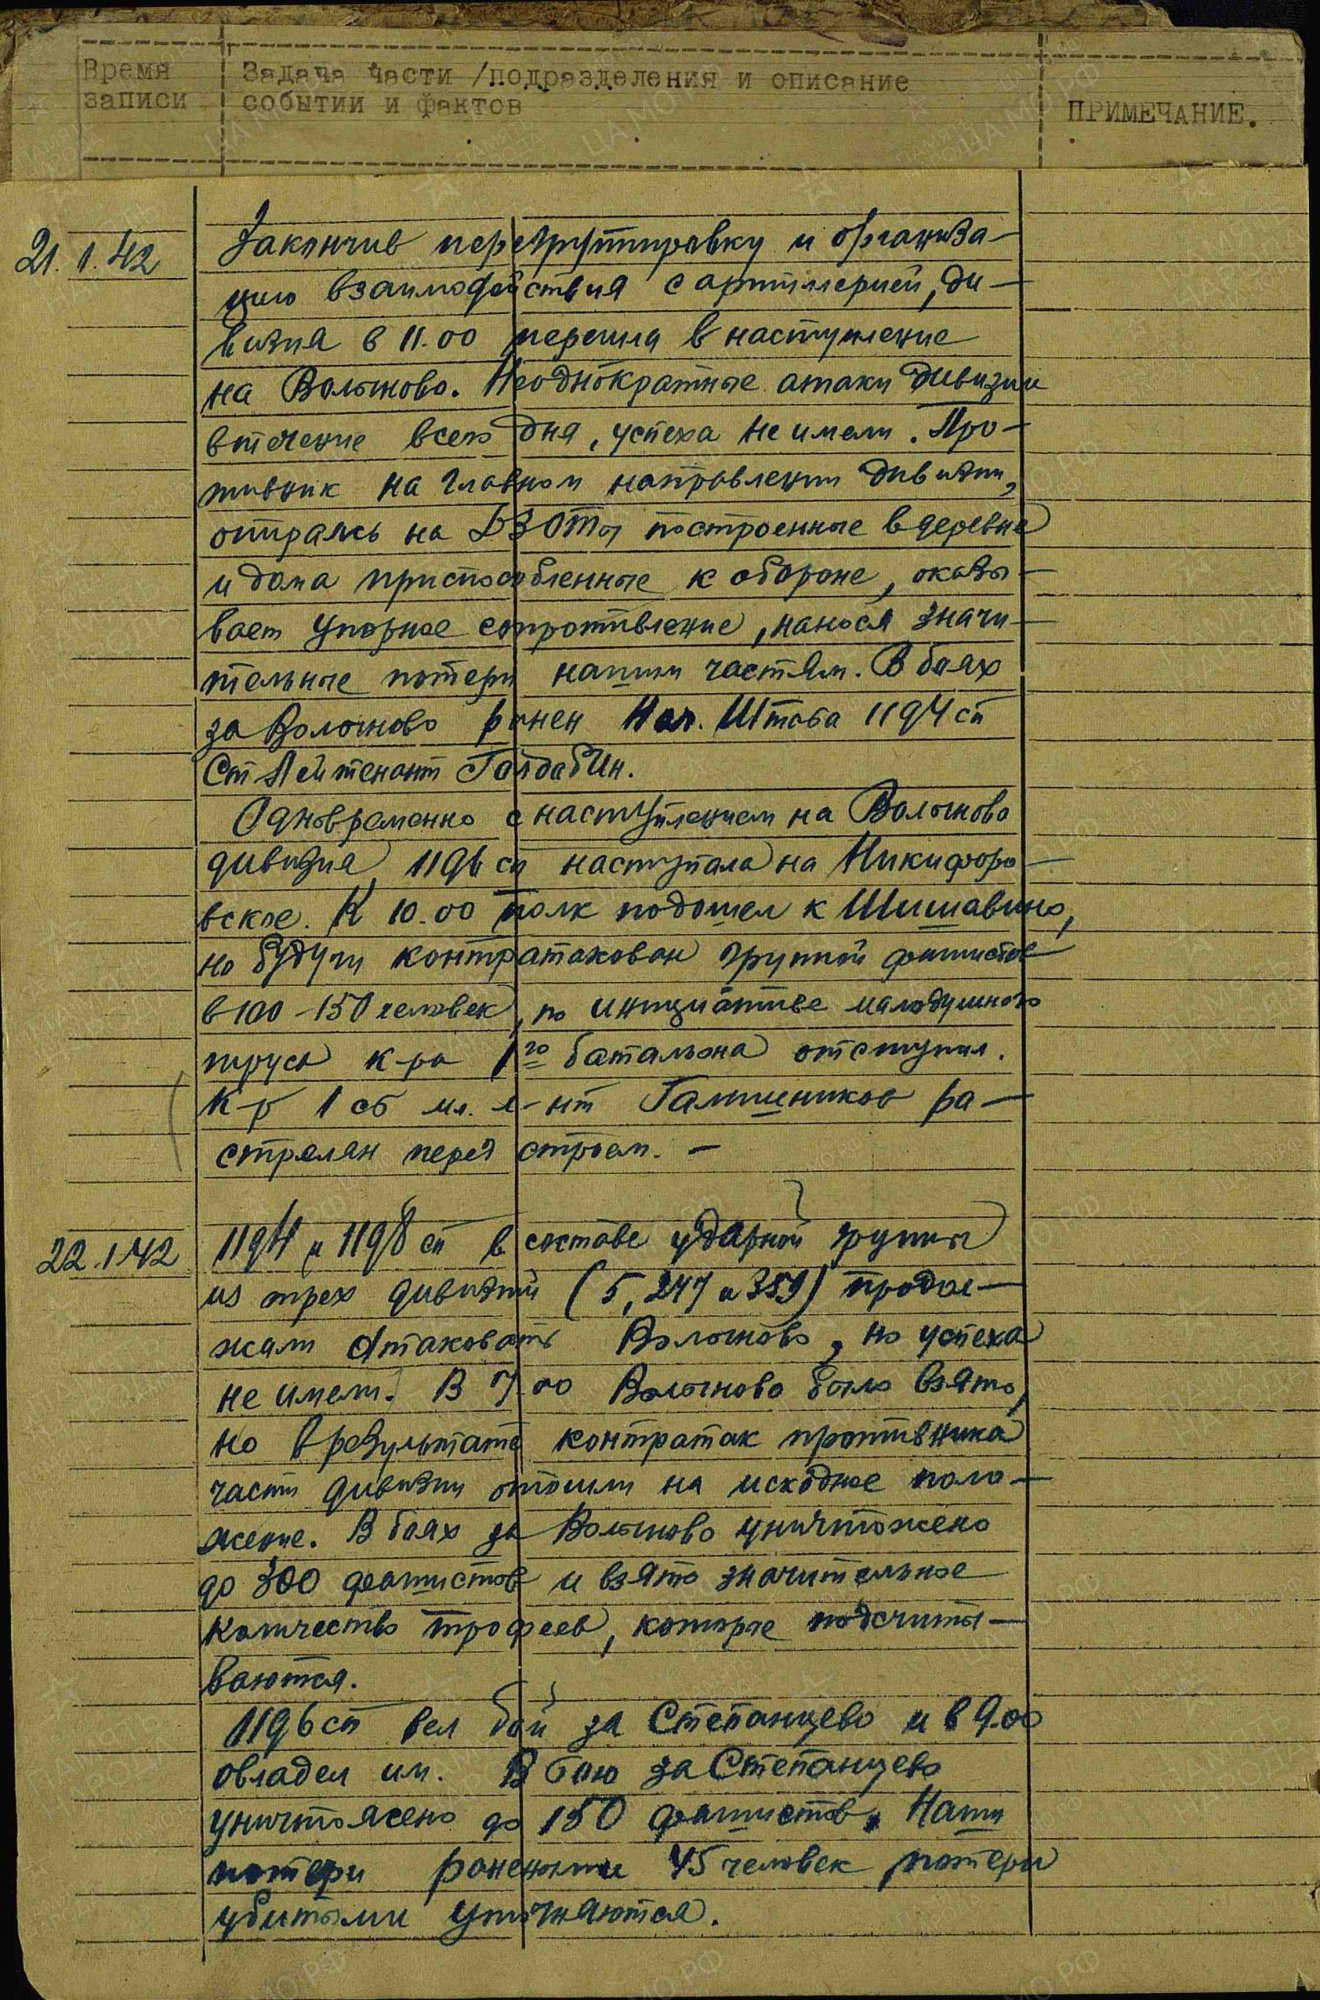 Время
записи
Задача части /подразделения и описание
событии и фактов
ПРИМЕЧАНИЕ.
21.1.42
Закончив перегруппировку и организа-
цию взаимодействия с артиллерией, ди-
визия в 11.00 перешла в наступление
на Волыново. Неоднократные атаки дивизии
втечение всего дня, успеха не имели. Про-
тивник на главном направлении дивизии,
опираясь на ДЗОТы построенные в деревне
и дома приспособленные к обороне, оказы-
вает упорное сопротивление, нанося значи-
тельные потери нашим частям. В боях
за Волыново ранен Нач. Штаба 1194 сп
Ст Лейтенант
Одновременно с наступлением на Волыново
дивизия, 1196 сп наступала на Никифоро-
вское. К 10.00 полк подошел к Шишавино,
но будучи контратакован группой фашистов
в 100-150 человек, по инициативе малодушного
труса к-ра 1го батальона отступил.
К-р 1 сб мл. л-нт Галашников ра-
стрелян перед строем. -
22.1.42
1194 и 1198 сп в составе ударной группы
из трех дивизий (5, 247 и 359) продол-
жали атаковать Волыново, но успеха
не имели. В 7.00 Волыново было взято,
но в результате контратак противника
части дивизии отошли на исходное поло-
жение. В боях за Волыново уничтожено
до 300 фашистов и взято значительное
количество трофеев, которые подсчиты-
ваются.
1196 сп вел бой за Степанцево и в 9.00
овладел им. В бою за Степанцево
уничтожено до 150 фашистов. Наши
потери ранеными 45 человек, потери
убитыми уточняются.